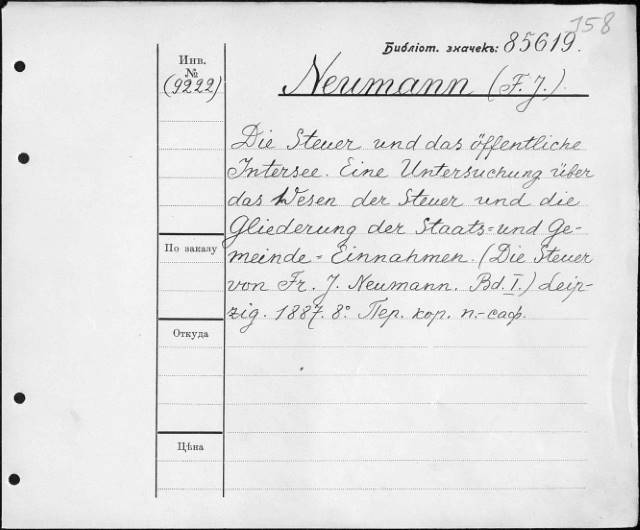 158
Библіот. значекъ: 85619.
Инв.
№
(9222)
Neumann (F. J.).
Die Steuer und das öffentliche
Intersee. Eine Untersuchung über
das Wesen der Steuer und die
Gliederung der Staats= und Ge-
meinde=Einnahmen. (Die Steuer
von Fr. J. Neumann. Bd. I.) Leip-
zig. 1887. 8º. Пер. кор. п.-саф.
По заказу
Откуда
Цѣна